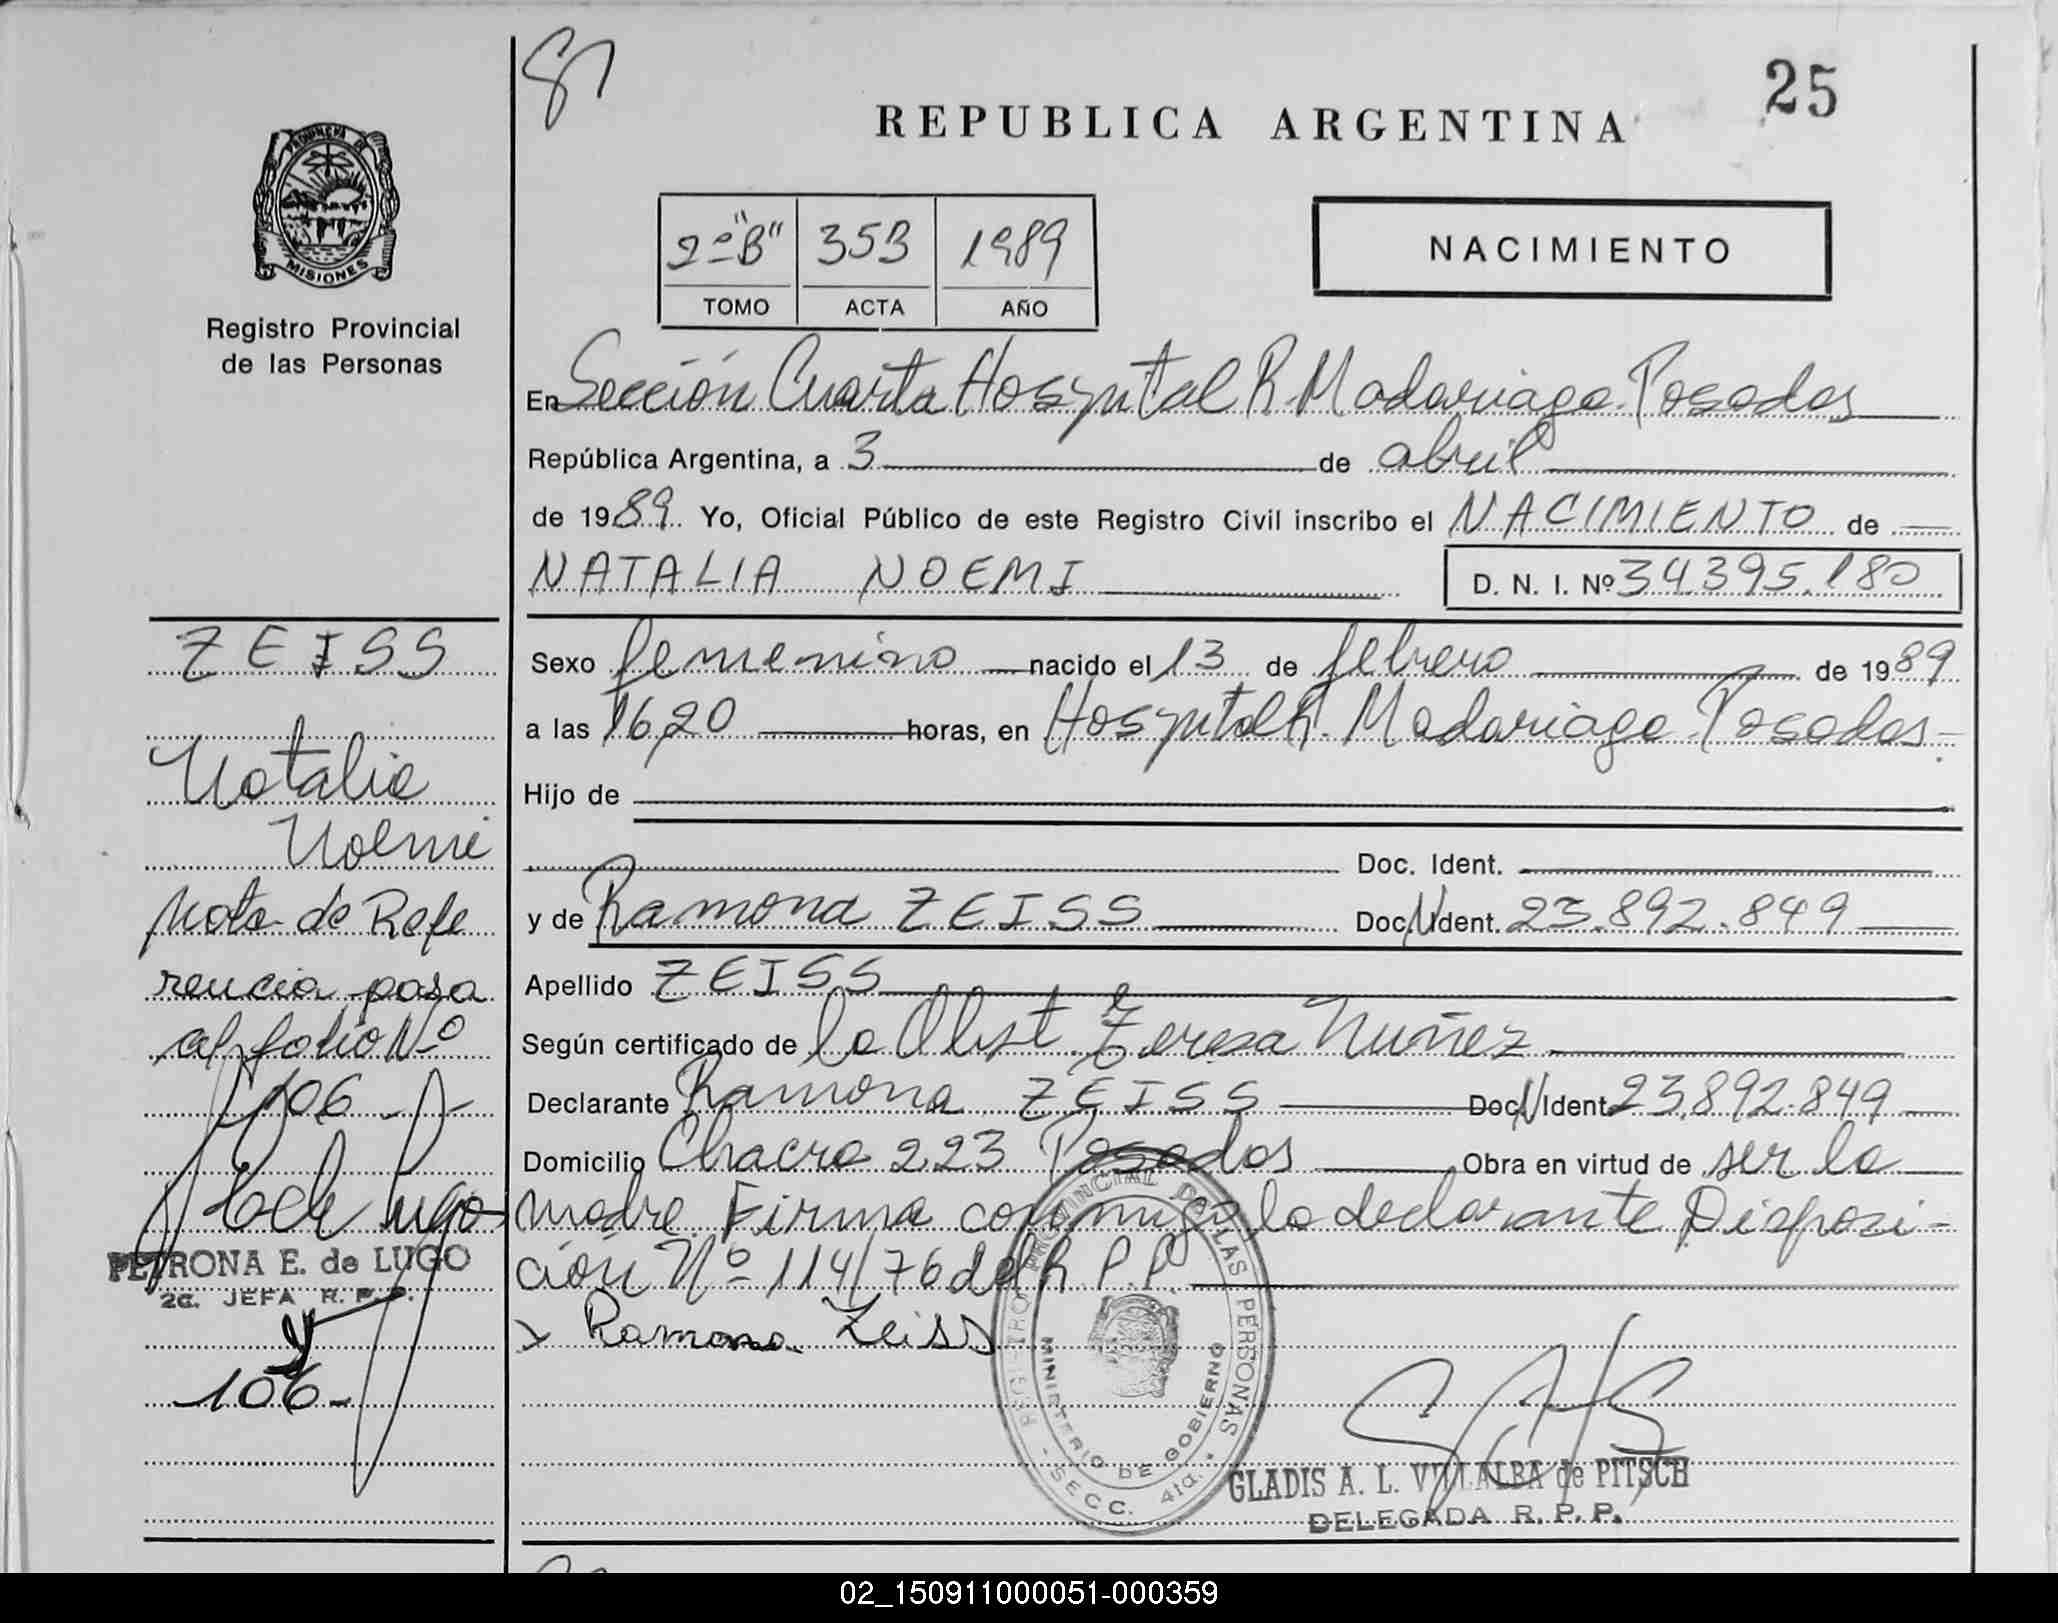 87
25
REPUBLICA ARGENTINA
PROVINCIA DE
MISIONES
Registro Provincial
de las Personas
2º "B" 353 1989
TOMO ACTA AÑO
NACIMIENTO
En Sección Cuarta Hospital R. Madariaga Posadas
República Argentina, a 3 de abril
de 1989 Yo, Oficial Público de este Registro Civil inscribo el NACIMIENTO de
NATALIA NOEMI D. N. I. Nº 34.395.180
Sexo femenino nacido el 13 de febrero de 1989
a las 16,20 horas, en Hospital R. Madariaga Posadas.
Hijo de
Doc. Ident.
y de Ramona ZEISS Doc. N Ident. 23.892.849
Apellido ZEISS
Según certificado de la Obst. Teresa Nuñez
Declarante Ramona ZEISS Doc. N Ident. 23.892.849
Domicilio Chacra 223 Posadas Obra en virtud de ser la
madre. Firma conmigo la declarante Disposi-
ción Nº 114/76 del R.P.P.
x Ramona Zeiss
REGISTRO PROVINCIAL DE LAS PERSONAS
MINISTERIO DE GOBIERNO
SECC. 4ta.
GLADIS A. L. VILLALBA de PITSCH
DELEGADA R. P. P.
ZEISS
Natalia
Noemi
Nota de Refe
rencia pasa
al folio Nº
106
PETRONA E. de LUGO
2a. JEFA R. P. P.
106-
02_150911000051-000359